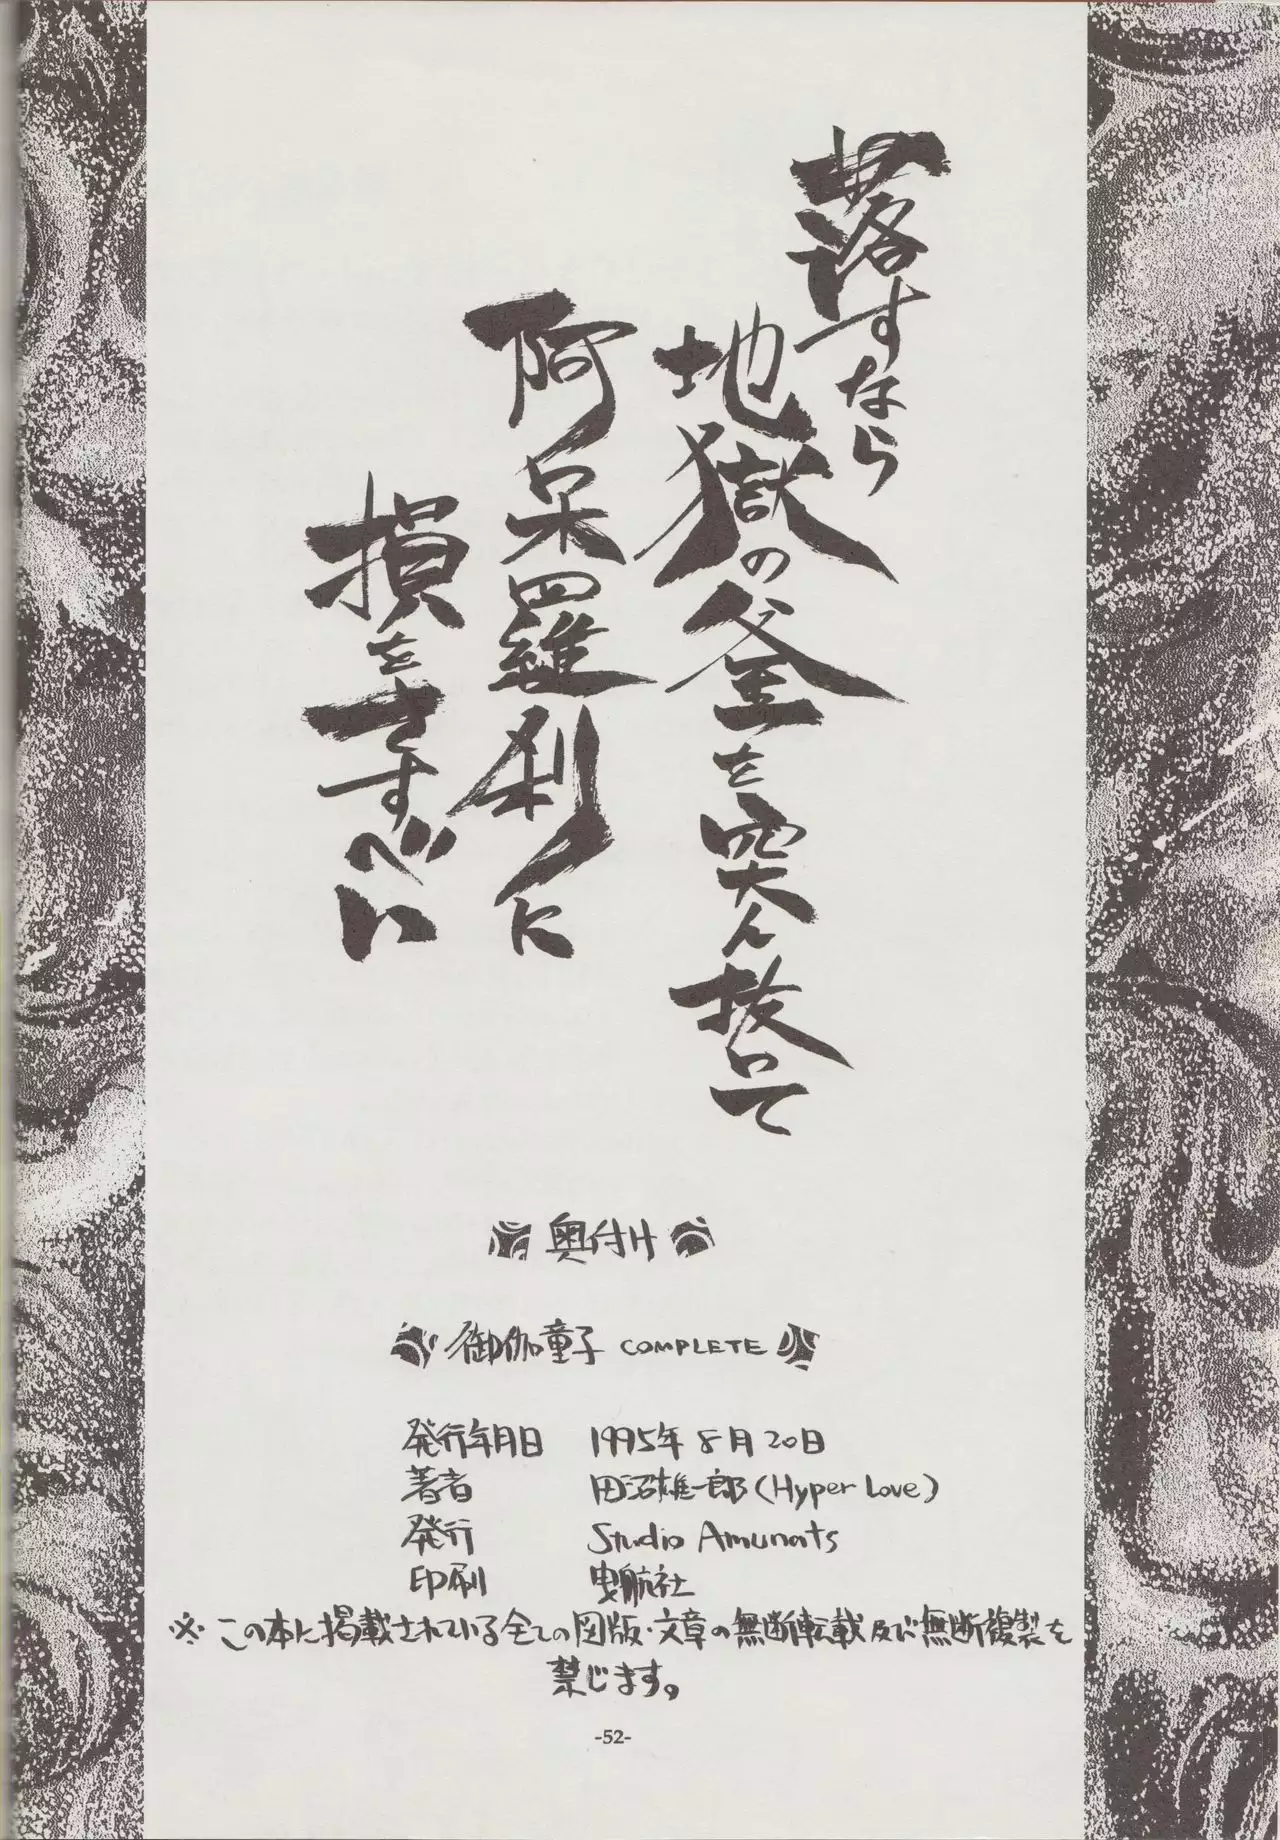 落すなら
地獄の釜を突ん抜いて
阿呆羅刹に
損をさすべい
奥付け
御伽童子 COMPLETE
発行年月日 1995年8月20日
著者 田沼雄一郎(Hyper Love)
発行 Studio Amunats
印刷 曳航社
※この本に掲載されている全ての図版・文章の無断転載及び無断複製を
禁じます。
-52-